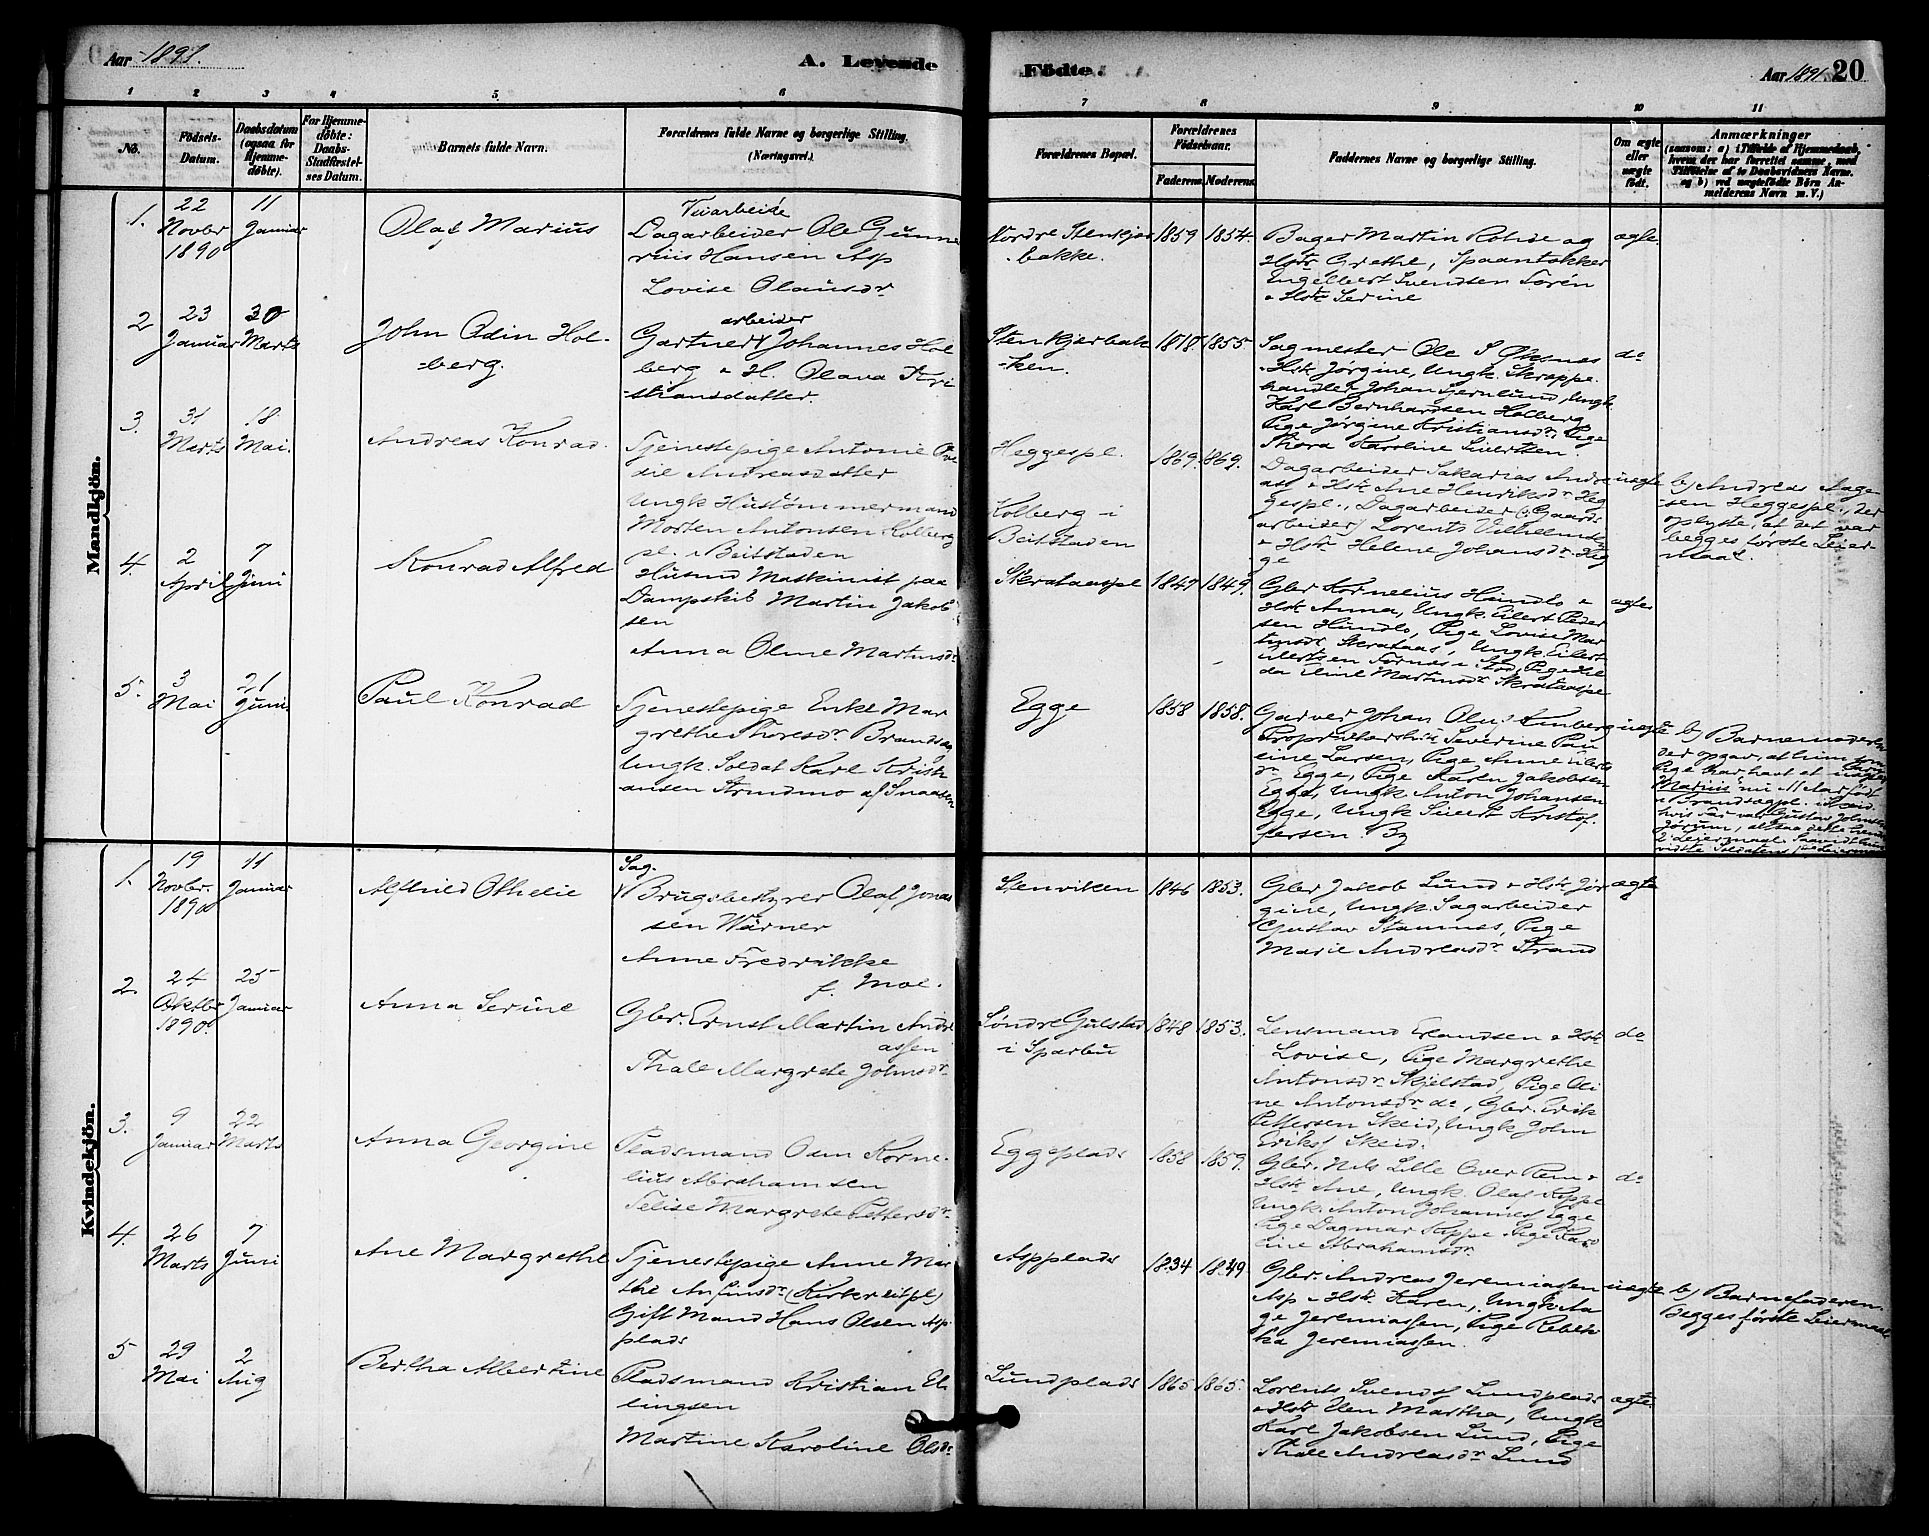 Aar 1891.
A. Levende
Födte.
Aar 1891. 20
1 2 3 4 5 6 7 8 9 10 11
No.
Födsels-
Datum.
Daabsdatum
(ogsaa for
Hjemme-
døbte).
For Hjemme-
døbte:
Daabs-
Stadfæstel-
ses Datum.
Barnets fulde Navn.
Forældrenes fulde Navne og borgerlige Stilling.
(Næringsvei.)
Forældrenes Bopæl.
Forældrenes
Födselsaar.
Faderens Moderens
Faddernes Navne og borgerlige Stilling.
Om ægte
eller
uægte
født.
Anmærkninger
(saasom: a) i Tilfælde af Hjemmedaab,
hvem der har forrettet samme, med
Tilføielse af to Daabsvidners Navne,
og b) ved uægtefødte Börn An-
melderens Navn m. V.)
Mandkjön.
1.
22
Novbr
1890
11
Januar
Olaf Marius
Dagarbeider Ole Gunne
rius Hansen Asp
Lovise Olausdr
Nordre Stenkjær
bakke.
1859 1854.
Bager Martin Rohde og
Hstr Grethe, Spaantækker
Engelbert Svendsen Sørén
& Hstr Serine
ægte.
2
23
Januar
30
Marts
John Odin Hol-
-berg.
arbeider
Gartner Johannes Hol
berg & H. Olava Kri
-stiansdatter.
Stenkjerbak
-ken.
1818. 1855.
Sagmester Ole S Øksnes
& Hstr Jørgine, Ungk. Skræppe-
handler Johan Gjernlund, Ungk
Karl Bernhardsen Holberg
Pige Jørgine Kristiansdr, Pige
Thora Karoline Sivertsen.
do
3.
31
Marts
18
Mai.
Andreas Konrad.
Tjenestepige Antonie Ove
die Andreasdatter
Ungk. Hustømmermand
Morten Antonsen Kolberg
pl. i Beitstaden
Heggespl.
Kolberg i
Beitstaden
1869. 1869.
Dagarbeider Sakarias Andre
as & Hstr Ane Henriksdr Heg
gespl., Dagarbeider (: Gaards
arbeider) Lorents Vilhelmsen
& Hstr Helene Johansdr Heg
ge
uægte
b) Andreas Aage
sen Heggespl., der
oplyste, at det var
begges første Leier
maal.
4.
2
April
7
Juni
Konrad Alfred
Husmd Maskinist paa
Dampskib Martin Jakob
sen
Anna Oline Martinsdr
Skrataaspl
1847 1849.
Gbr Kornelius Hundlo &
Hstr Anna, Ungk. Eilert Peder
sen Hundlo, Pige Lovise Mar
tinsdr Skrataas, Ungk. Eilert
Eilertsen Fornes i Stod, Pige
da Eline Martinsdr Skrataaspl
ægte
5.
3
Mai
21
Juni.
Paul Konrad
Tjenestepige Enke Mar
grethe Thoresdr Brandsæg
Ungk. Soldat Karl Kristi
ansen Strindmo af Snaasen
Egge
1858 1858.
Garver Johan Olu
Proprietærhstr Severine Pau
line Larsen, Pige Anne Eilerts
dr Egge, Pige Karen Jakobsen
Egge, Ungk Anton Johansen
Egge, Ungk Sivert Kristof
fersen By
uægte
b) Barnemoderen
der opgav, at hun som
Pige har havt et
Marius nu 11 Aar født
i Brandsægpl. i Skeid.
hvis Far var Gustav Johnsen
Kvindekjön.
1.
19
Novbr.
1890
11
Januar
Alfhild Othelie
Sag
Brugsbestyrer Olaf Jonas
sen Wärner
Anne Fredrikke
f. Moe.
Stenviken
1846 1853.
Gbr Jakob Lund & Hstr Jør
gine, Ungk. Sagarbeider
Gustav Stamnes, Pige
Marie Andreasdr Strand
ægte
2.
24
Oktbr
1890.
25
Januar
Anna Serine
Gbr. Ernst Martin Andr
assen
Thale Margrete Johnsdr
Söndre Gulstad
i Sparbu
1848 1853.
Lensmand Erlandsen & Hstr
Lovise, Pige Margrethe
Antonsdr Skjelstad, Pige Oli
ne Antonsdr do, Gbr. Erik
Pettersen Skeid, Ungk John
Eriks Skeid.
do
3.
9
Januar
22
Marts
Anna Georgine
Pladsmand Odin Korne-
lius Abrahamsen
Telise Margrete Pettersdr
Eggeplads
1858 1859.
Gbr. Nels Lille Over Rem &
Hstr Ane, Ungk. Olaf Kippe
Ungk. Anton Johannes Egge
Pige Dagmar Kippe Pige Karo
line Abrahamsdr
do
4.
26
Marts
7
Juni
Ane Margrethe
Tjenestepige Anne Mar
the Anfinsdr (Kirkereitpl)
Gift Mand Hans Olsen Asp
plads
Aspplads
1834 1849
Gbr. Andreas Jeremiassen
Asp & Hstr Karen, Ungk. Aa
ge Jeremiassen, Pige Rebek
ka Jeremiassen.
uægte
b) Barnefaderen.
Begges første Leiermaal
5
29
Mai
2
Aug
Bertha Albertine
Pladsmand Kristian El
lingsen
Martine Karoline Olsdr
Lundplads
1865 1865.
Lorents Svends Lundplads
& Hstr Elen Martha, Ungk
Karl Jakobsen Lund, Pige
Thale Andreasdr Lund
ægte